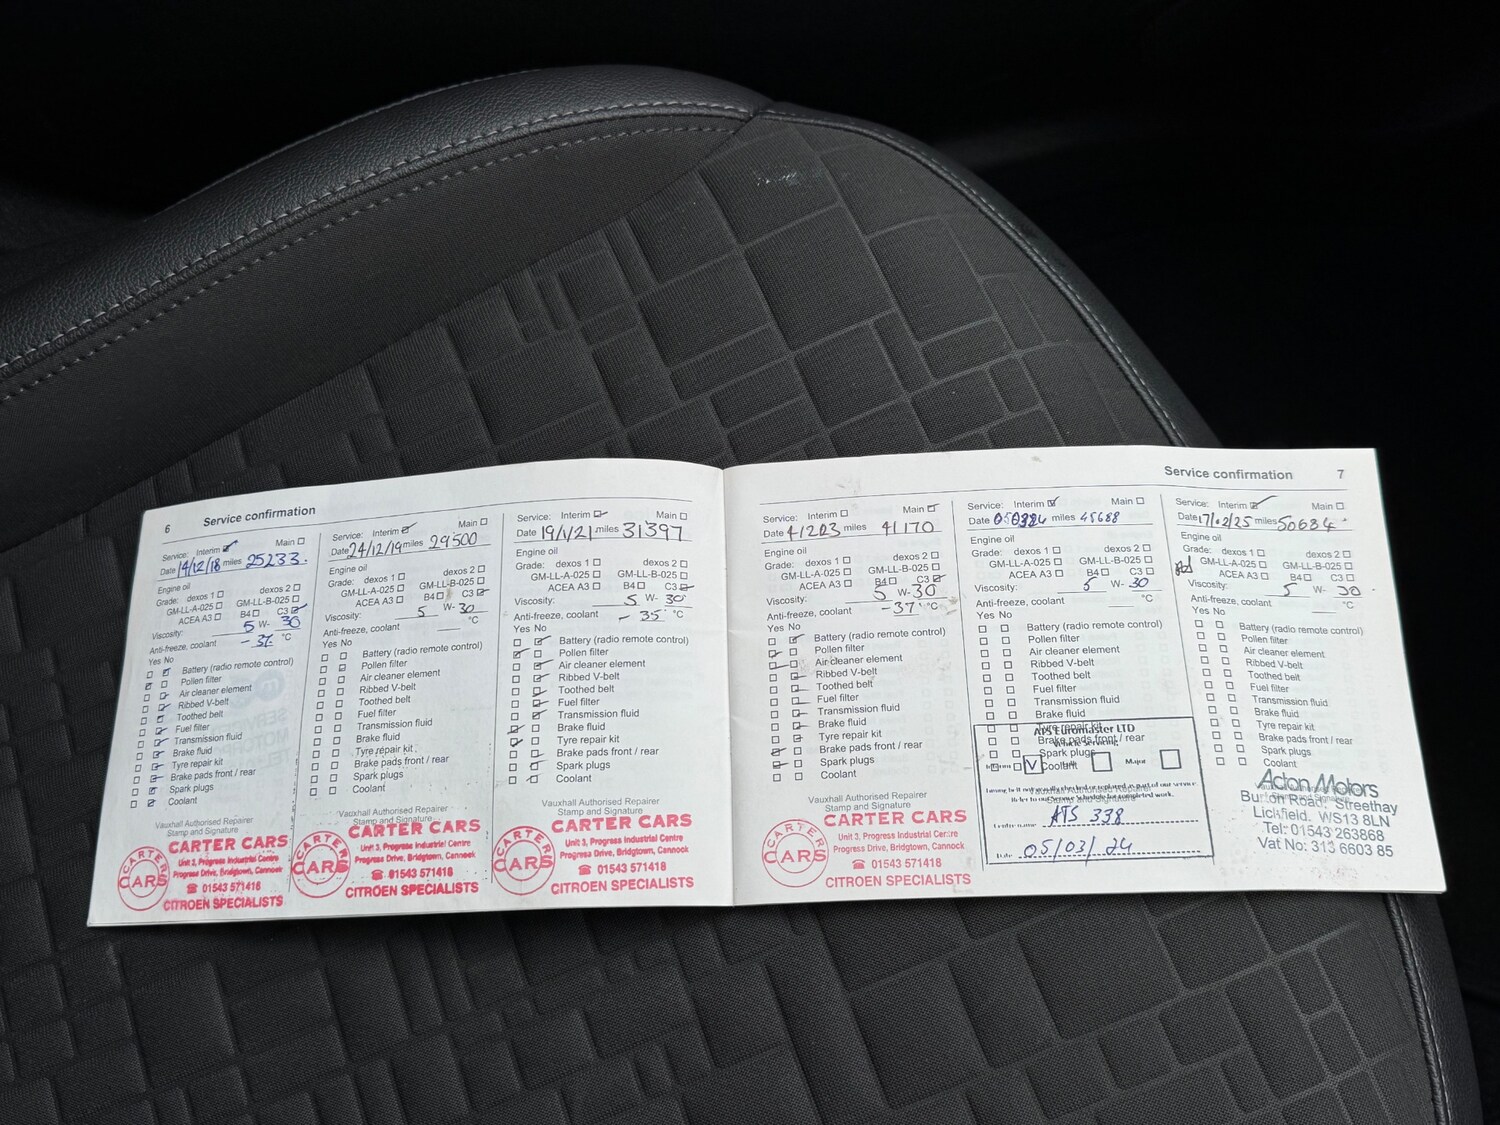 6 Service confirmation
Service: Interim Main
Date 14/12/18 miles 25233.
Engine oil
Grade: dexos 1 dexos 2
GM-LL-A-025 GM-LL-B-025
ACEA A3 B4 C3
Viscosity: 5 W- 30
Anti-freeze, coolant - 37 °C
Yes No
Battery (radio remote control)
Pollen filter
Air cleaner element
Ribbed V-belt
Toothed belt
Fuel filter
Transmission fluid
Brake fluid
Tyre repair kit
Brake pads front / rear
Spark plugs
Coolant
Vauxhall Authorised Repairer
Stamp and Signature
CARTER CARS
CARTER CARS
Unit 3, Progress Industrial Centre
Progress Drive, Bridgtown, Cannock
☎ 01543 571418
CITROEN SPECIALISTS
Service: Interim Main
Date 24/12/19 miles 29500
Engine oil
Grade: dexos 1 dexos 2
GM-LL-A-025 GM-LL-B-025
ACEA A3 B4 C3
Viscosity: 5 W- 30
Anti-freeze, coolant °C
Yes No
Battery (radio remote control)
Pollen filter
Air cleaner element
Ribbed V-belt
Toothed belt
Fuel filter
Transmission fluid
Brake fluid
Tyre repair kit
Brake pads front / rear
Spark plugs
Coolant
Vauxhall Authorised Repairer
Stamp and Signature
CARTER CARS
CARTER CARS
Unit 3, Progress Industrial Centre
Progress Drive, Bridgtown, Cannock
☎ 01543 571418
CITROEN SPECIALISTS
Service: Interim Main
Date 19/1/21 miles 31397
Engine oil
Grade: dexos 1 dexos 2
GM-LL-A-025 GM-LL-B-025
ACEA A3 B4 C3
Viscosity: 5 W- 30
Anti-freeze, coolant - 35 °C
Yes No
Battery (radio remote control)
Pollen filter
Air cleaner element
Ribbed V-belt
Toothed belt
Fuel filter
Transmission fluid
Brake fluid
Tyre repair kit
Brake pads front / rear
Spark plugs
Coolant
Vauxhall Authorised Repairer
Stamp and Signature
CARTER CARS
CARTER CARS
Unit 3, Progress Industrial Centre
Progress Drive, Bridgtown, Cannock
☎ 01543 571418
CITROEN SPECIALISTS
Service confirmation 7
Service: Interim Main
Date miles 41170
Engine oil
Grade: dexos 1 dexos 2
GM-LL-A-025 GM-LL-B-025
ACEA A3 B4 C3
Viscosity: 5 W- 30
Anti-freeze, coolant - 37 °C
Yes No
Battery (radio remote control)
Pollen filter
Air cleaner element
Ribbed V-belt
Toothed belt
Fuel filter
Transmission fluid
Brake fluid
Tyre repair kit
Brake pads front / rear
Spark plugs
Coolant
Vauxhall Authorised Repairer
Stamp and Signature
CARTER CARS
CARTER CARS
Unit 3, Progress Industrial Centre
Progress Drive, Bridgtown, Cannock
☎ 01543 571418
CITROEN SPECIALISTS
Service: Interim Main
Date miles 45688
Engine oil
Grade: dexos 1 dexos 2
GM-LL-A-025 GM-LL-B-025
ACEA A3 B4 C3
Viscosity: 5 W- 30
Anti-freeze, coolant °C
Yes No
Battery (radio remote control)
Pollen filter
Air cleaner element
Ribbed V-belt
Toothed belt
Fuel filter
Transmission fluid
Brake fluid
Tyre repair kit
ATS Euromaster LTD
Brake pads front / rear
Vehicle Servicing
Spark plugs
Coolant
Full Major
Centre name ATS 338
Date 05/03/24
Service: Interim Main
Date 17/02/25 miles 50684
Engine oil
Grade: dexos 1 dexos 2
GM-LL-A-025 GM-LL-B-025
ACEA A3 B4 C3
Viscosity: 5 W- 30
Anti-freeze, coolant °C
Yes No
Battery (radio remote control)
Pollen filter
Air cleaner element
Ribbed V-belt
Toothed belt
Fuel filter
Transmission fluid
Brake fluid
Tyre repair kit
Brake pads front / rear
Spark plugs
Coolant
Acton Motors
Burton Road, Streethay
Lichfield. WS13 8LN
Tel: 01543 263868
Vat No: 313 6603 85